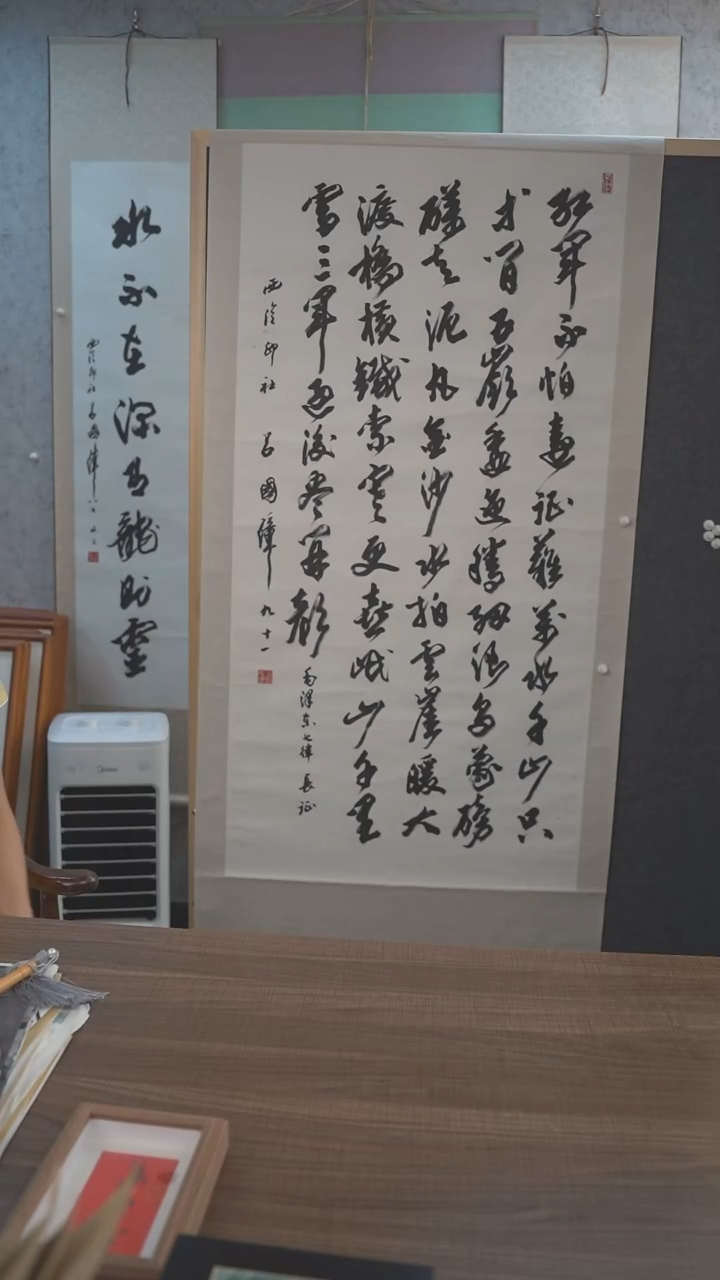 紅軍不怕遠征難萬水千山只
等閒五嶺逶迤騰細浪烏蒙磅
礴走泥丸金沙水拍雲崖暖大
渡橋橫鐵索寒更喜岷山千里
雪三軍過後盡開顏
毛澤東七律 長征
西泠印社 呂國璋 九十一
水不在深有龍則靈
西泠印社 呂國璋
Midea